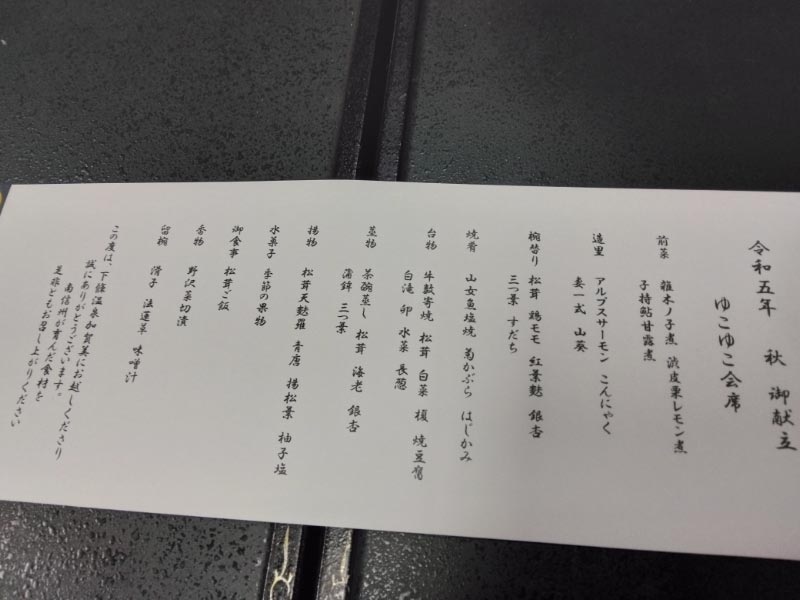 令和五年 秋 御献立
ゆこゆこ会席
前菜 雑木ノ子煮 渋皮栗レモン煮
子持鮎甘露煮
造里 アルプスサーモン こんにゃく
妻一式 山葵
椀替り 松茸 鶏モモ 紅葉麩 銀杏
三つ葉 すだち
焼肴 山女魚塩焼 菊かぶら はじかみ
台物 牛鼓寄焼 松茸 白菜 榎 焼豆腐
白滝 卵 水菜 長葱
蒸物 茶碗蒸し 松茸 海老 銀杏
蒲鉾 三つ葉
揚物 松茸天麩羅 青唐 揚松葉 柚子塩
水菓子 季節の果物
御食事 松茸ご飯
香物 野沢菜切漬
留椀 滑子 法蓮草 味噌汁
この度は、下條温泉加賀美にお越しくださり
誠にありがとうございます。
南信州が育んだ食材を
是非ともお召し上がりください